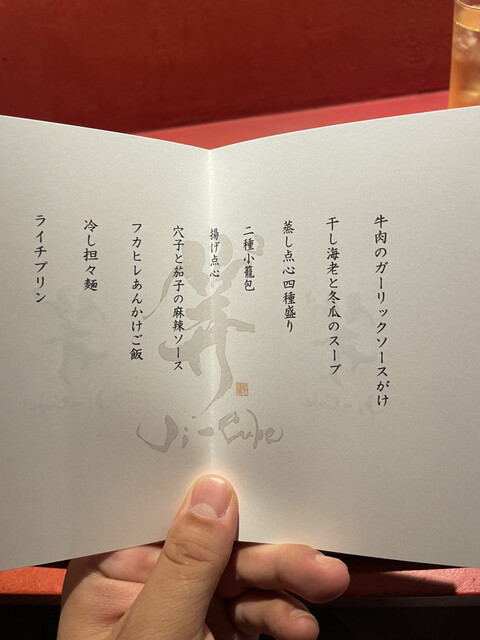 牛肉のガーリックソースがけ
干し海老と冬瓜のスープ
蒸し点心四種盛り
二種小籠包
揚げ点心
穴子と茄子の麻辣ソース
フカヒレあんかけご飯
冷し担々麺
ライチプリン
Ji-Cube